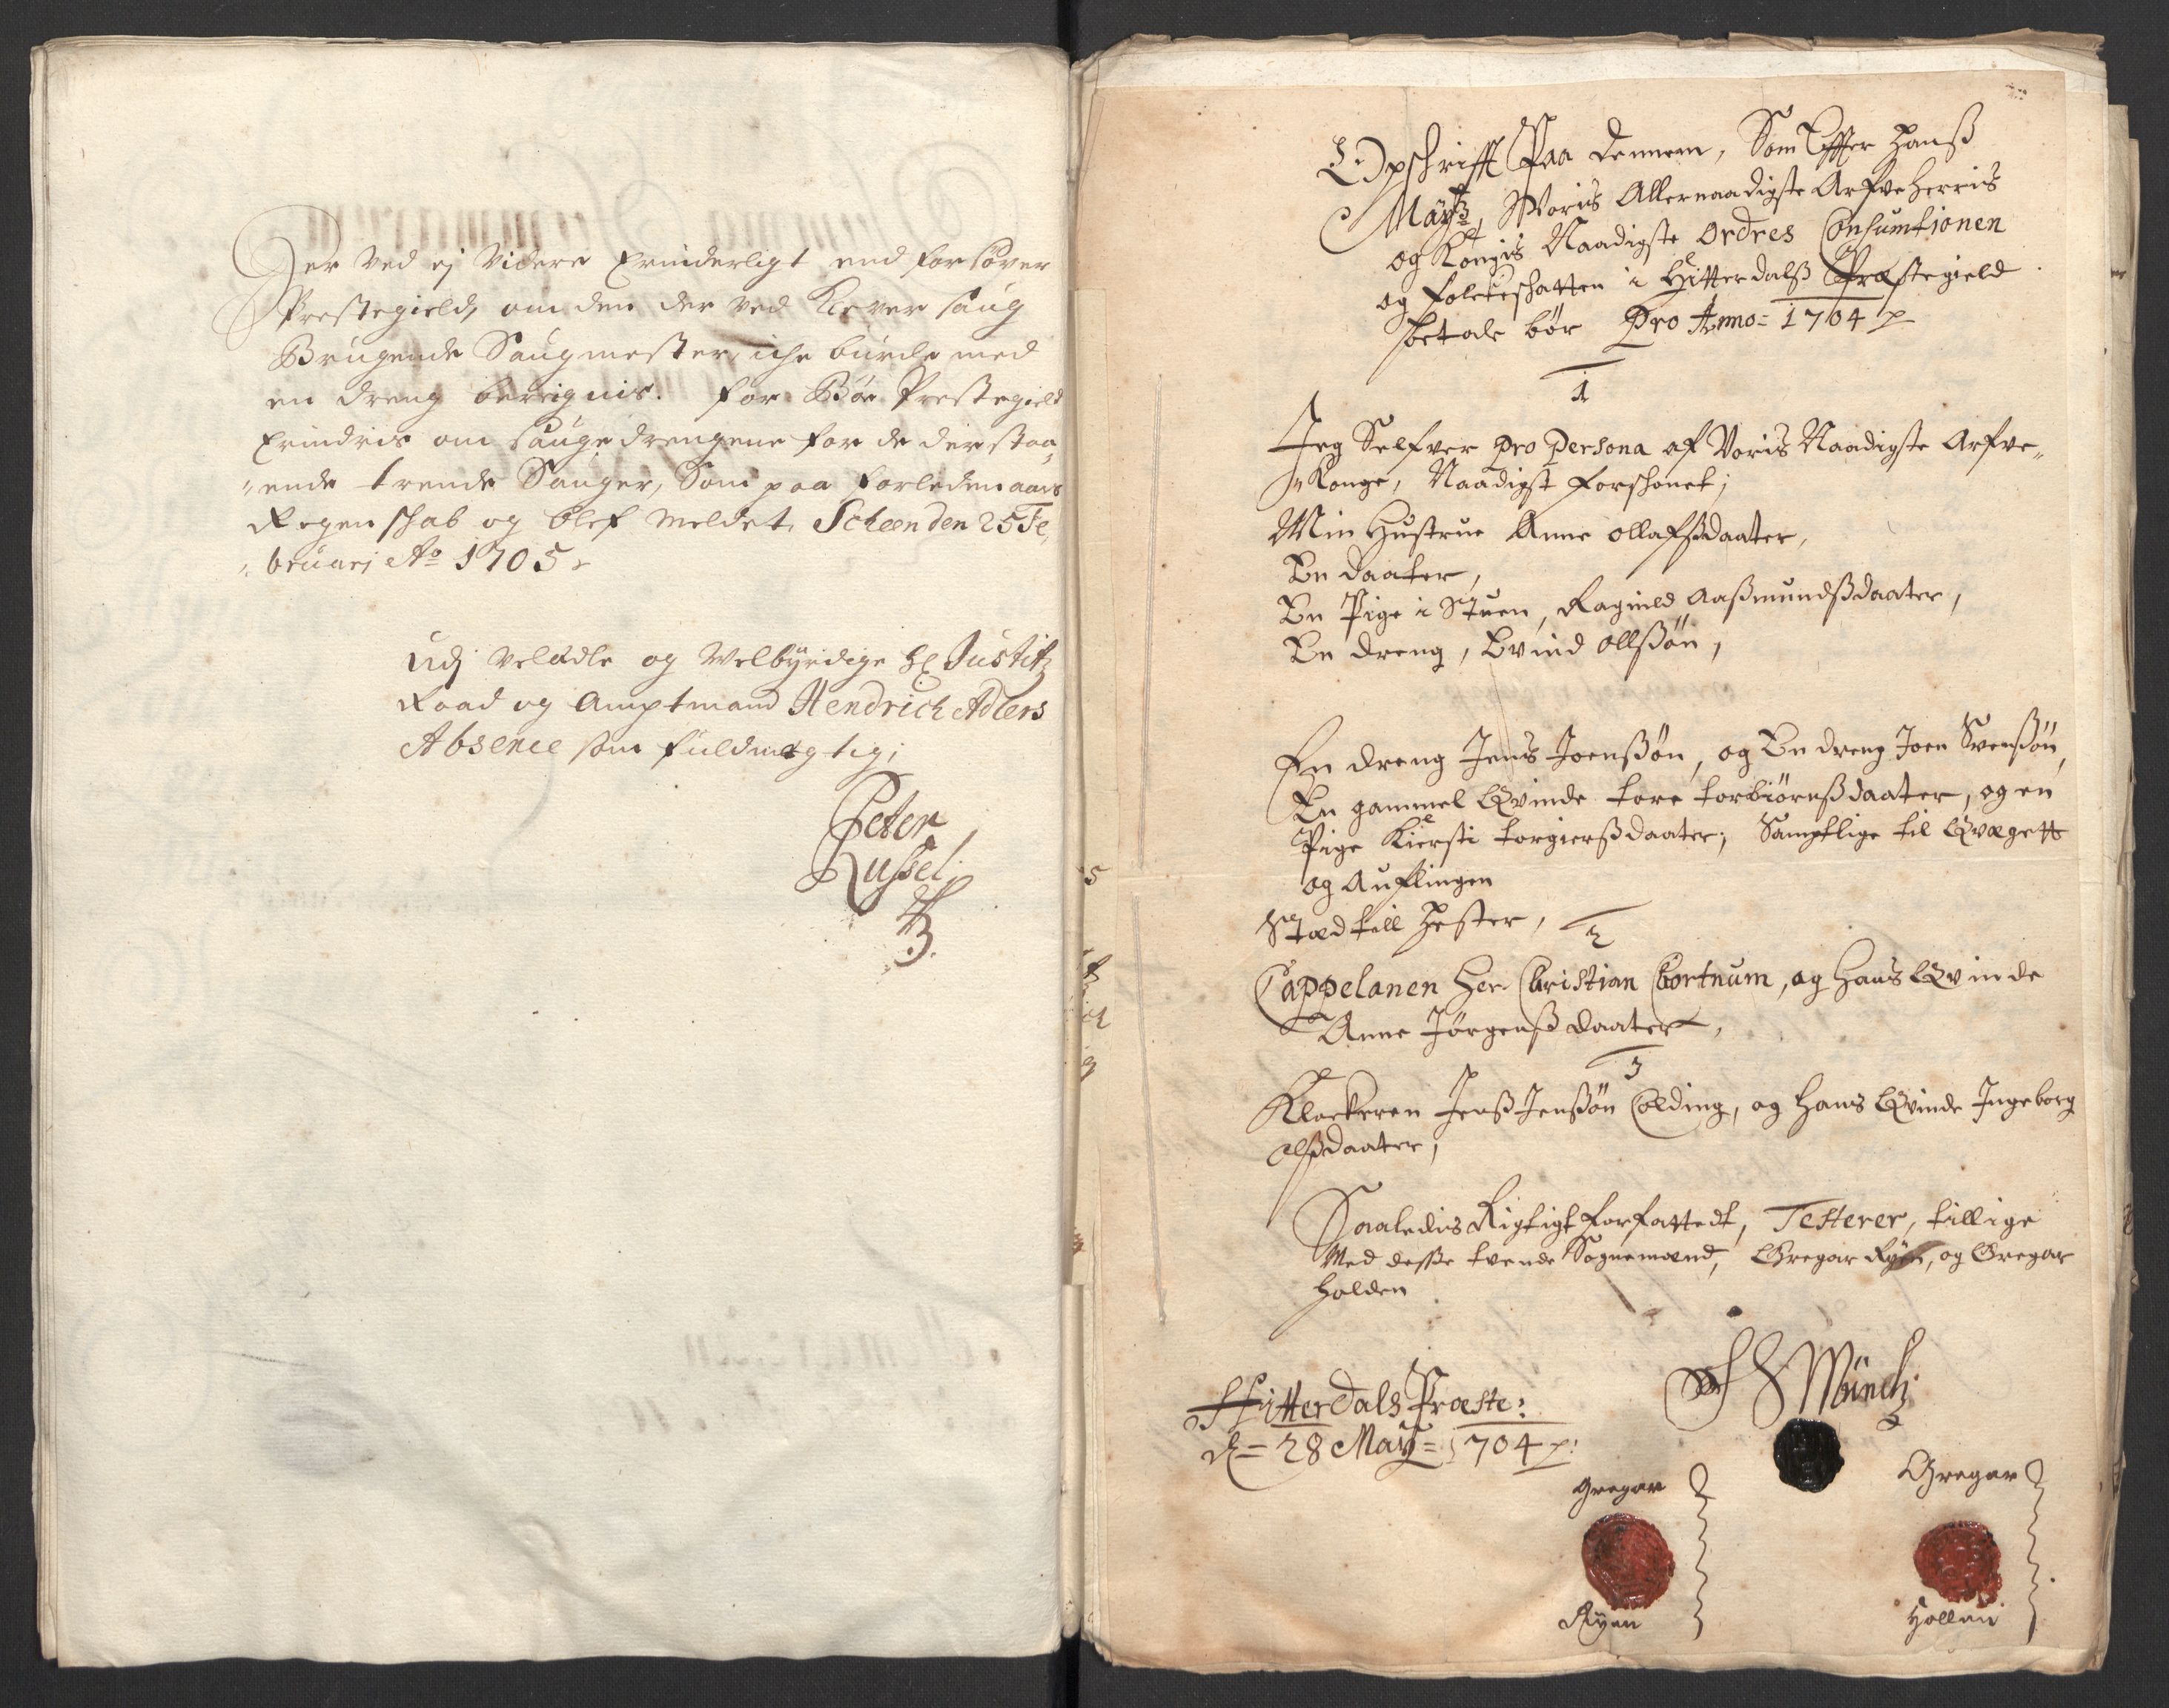 Her ved ej videre Erinderligt end for Søver
Prestegield, om den der ved Klever Saug
Brugende Saugmester iche burde med
en dreng beregnis. For Bøe Prestegield
Erindris om Sauge drengene for de der staa„
„ende trende Sauger, Som paa forleden aars
Regenschab og blef meldet. Scheen den 25 Fe„
„bruarj Ao 1705
Udj Velædle og Welbyrdige Hr Justitz
Raad og Amptmand Hendrich Adlers
Absence som fuldmegtig;
Peter
Russel
Opschrifft Paa dennem, Som Effter Hanß
Maytz, Woris Allernaadigste Arfveherris
og Kongis Naadigste Ordres Consumtionen
og folcheschatten i Hitterdalß Præstegield
betale bør Pro Anno = 1704
1
Jeg Selfver pro Persona af Voris Naadigste Arfve„
„Konge, Naadigst forschonet;
Min Hustrue Anne ollafßdaater,
En daater,
En Pige i Stuen, Ragnild Aaßmundßdaater,
En dreng, Evind ollßøn,
En dreng Jens Joenßøn, og En dreng Joen Svenßøn,
En gammel Qvinde tore torbiørnßdaater, og en
Pige Kiersti torgierßdaater; Samptlige til Qvægett
og Auflingen
Stæd till Hester,
2
Cappelanen Her Christian Cortnum, og Hans Qvinde
Anne Jørgenß daater,
3
Klockeren Jenß Jenßøn Colding, og hans Qvinde Ingeborg
olßdaater,
Saaledis Rigtigt forfattedt, Testerer, tillige
Med desse tvende Sognemænd, Gregar Ryen, og Gregar
Holden
Hitterdals Præste:
d = 28 May = 1704
Münch
Gregar
Ryen
Gregar
Hollen